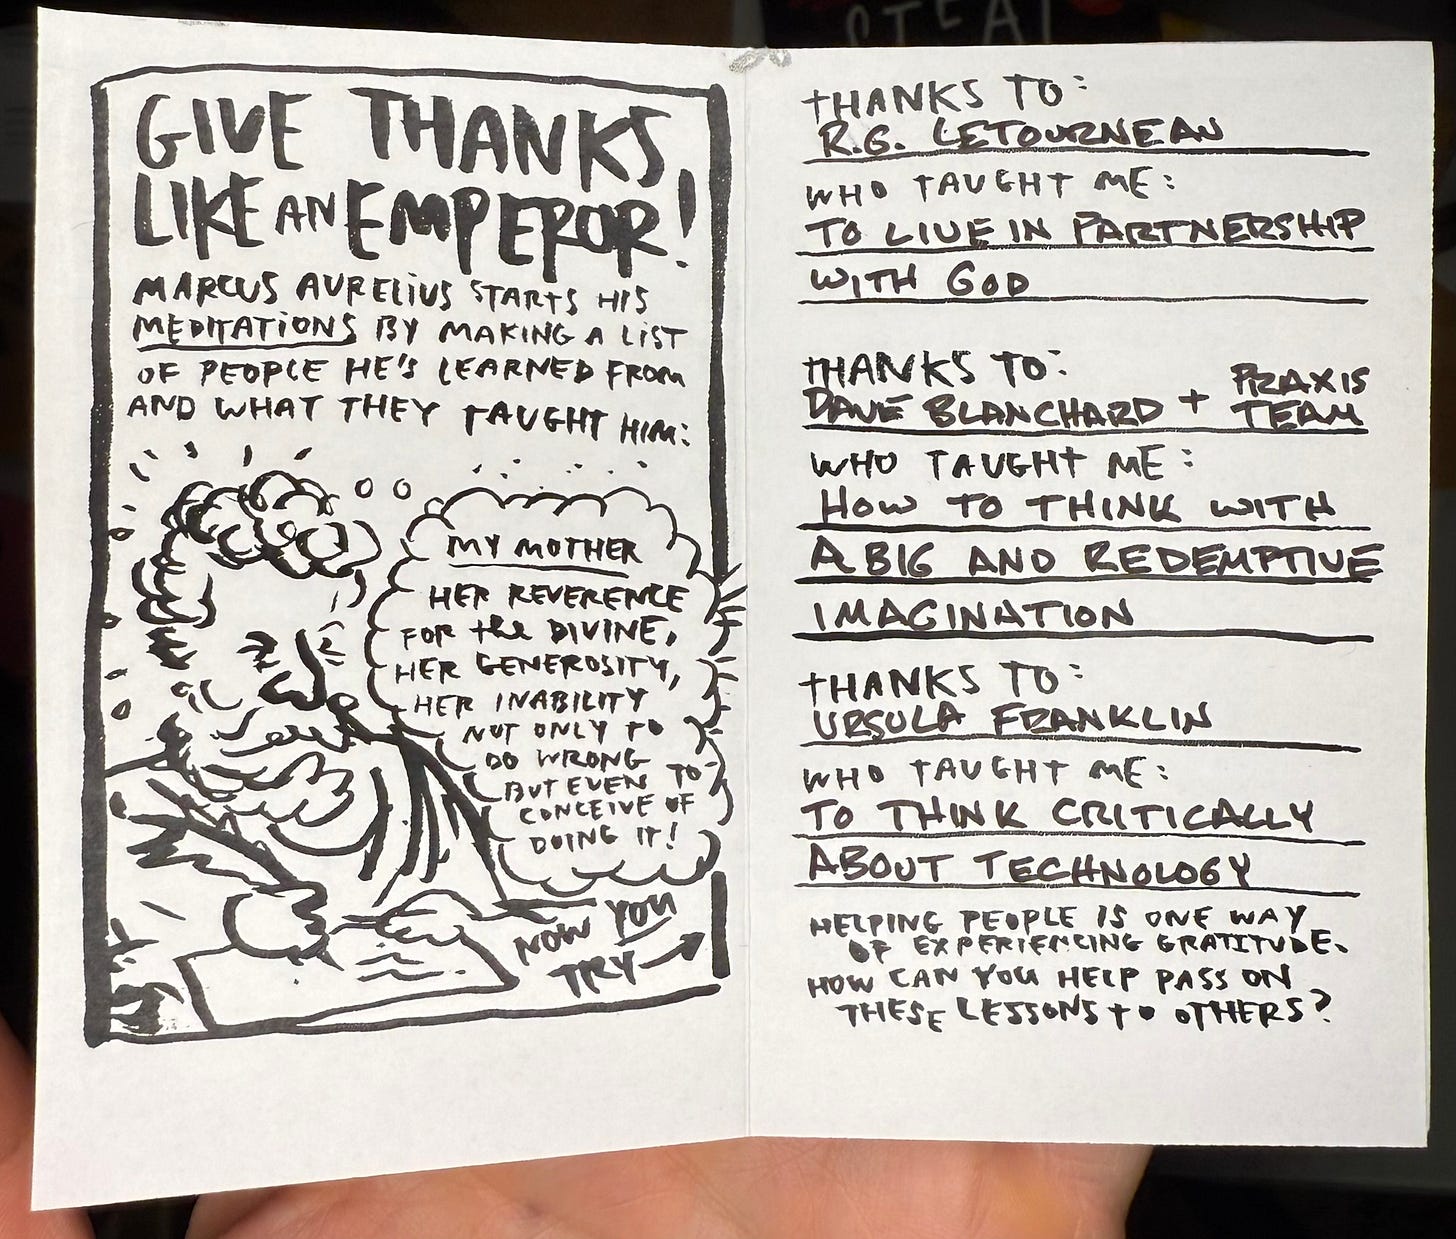 STEAL
GIVE THANKS
LIKE AN EMPEROR!
MARCUS AURELIUS STARTS HIS
MEDITATIONS BY MAKING A LIST
OF PEOPLE HE'S LEARNED FROM
AND WHAT THEY TAUGHT HIM:
MY MOTHER
HER REVERENCE
FOR the DIVINE,
HER GENEROSITY,
HER INABILITY
NOT ONLY TO
DO WRONG
BUT EVEN TO
CONCEIVE OF
DOING IT!
NOW YOU
TRY →
THANKS TO:
R.G. LETOURNEAU
WHO TAUGHT ME:
TO LIVE IN PARTNERSHIP
WITH GOD
THANKS TO:
DAVE BLANCHARD + PRAXIS
TEAM
WHO TAUGHT ME:
HOW TO THINK WITH
A BIG AND REDEMPTIVE
IMAGINATION
THANKS TO:
URSULA FRANKLIN
WHO TAUGHT ME:
TO THINK CRITICALLY
ABOUT TECHNOLOGY
HELPING PEOPLE IS ONE WAY
OF EXPERIENCING GRATITUDE.
HOW CAN YOU HELP PASS ON
THESE LESSONS TO OTHERS?